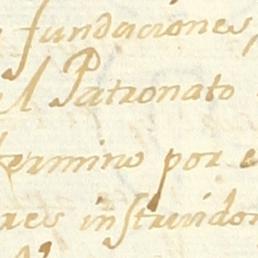 fundaciones,
el Patronato
termino por e
res instruidor